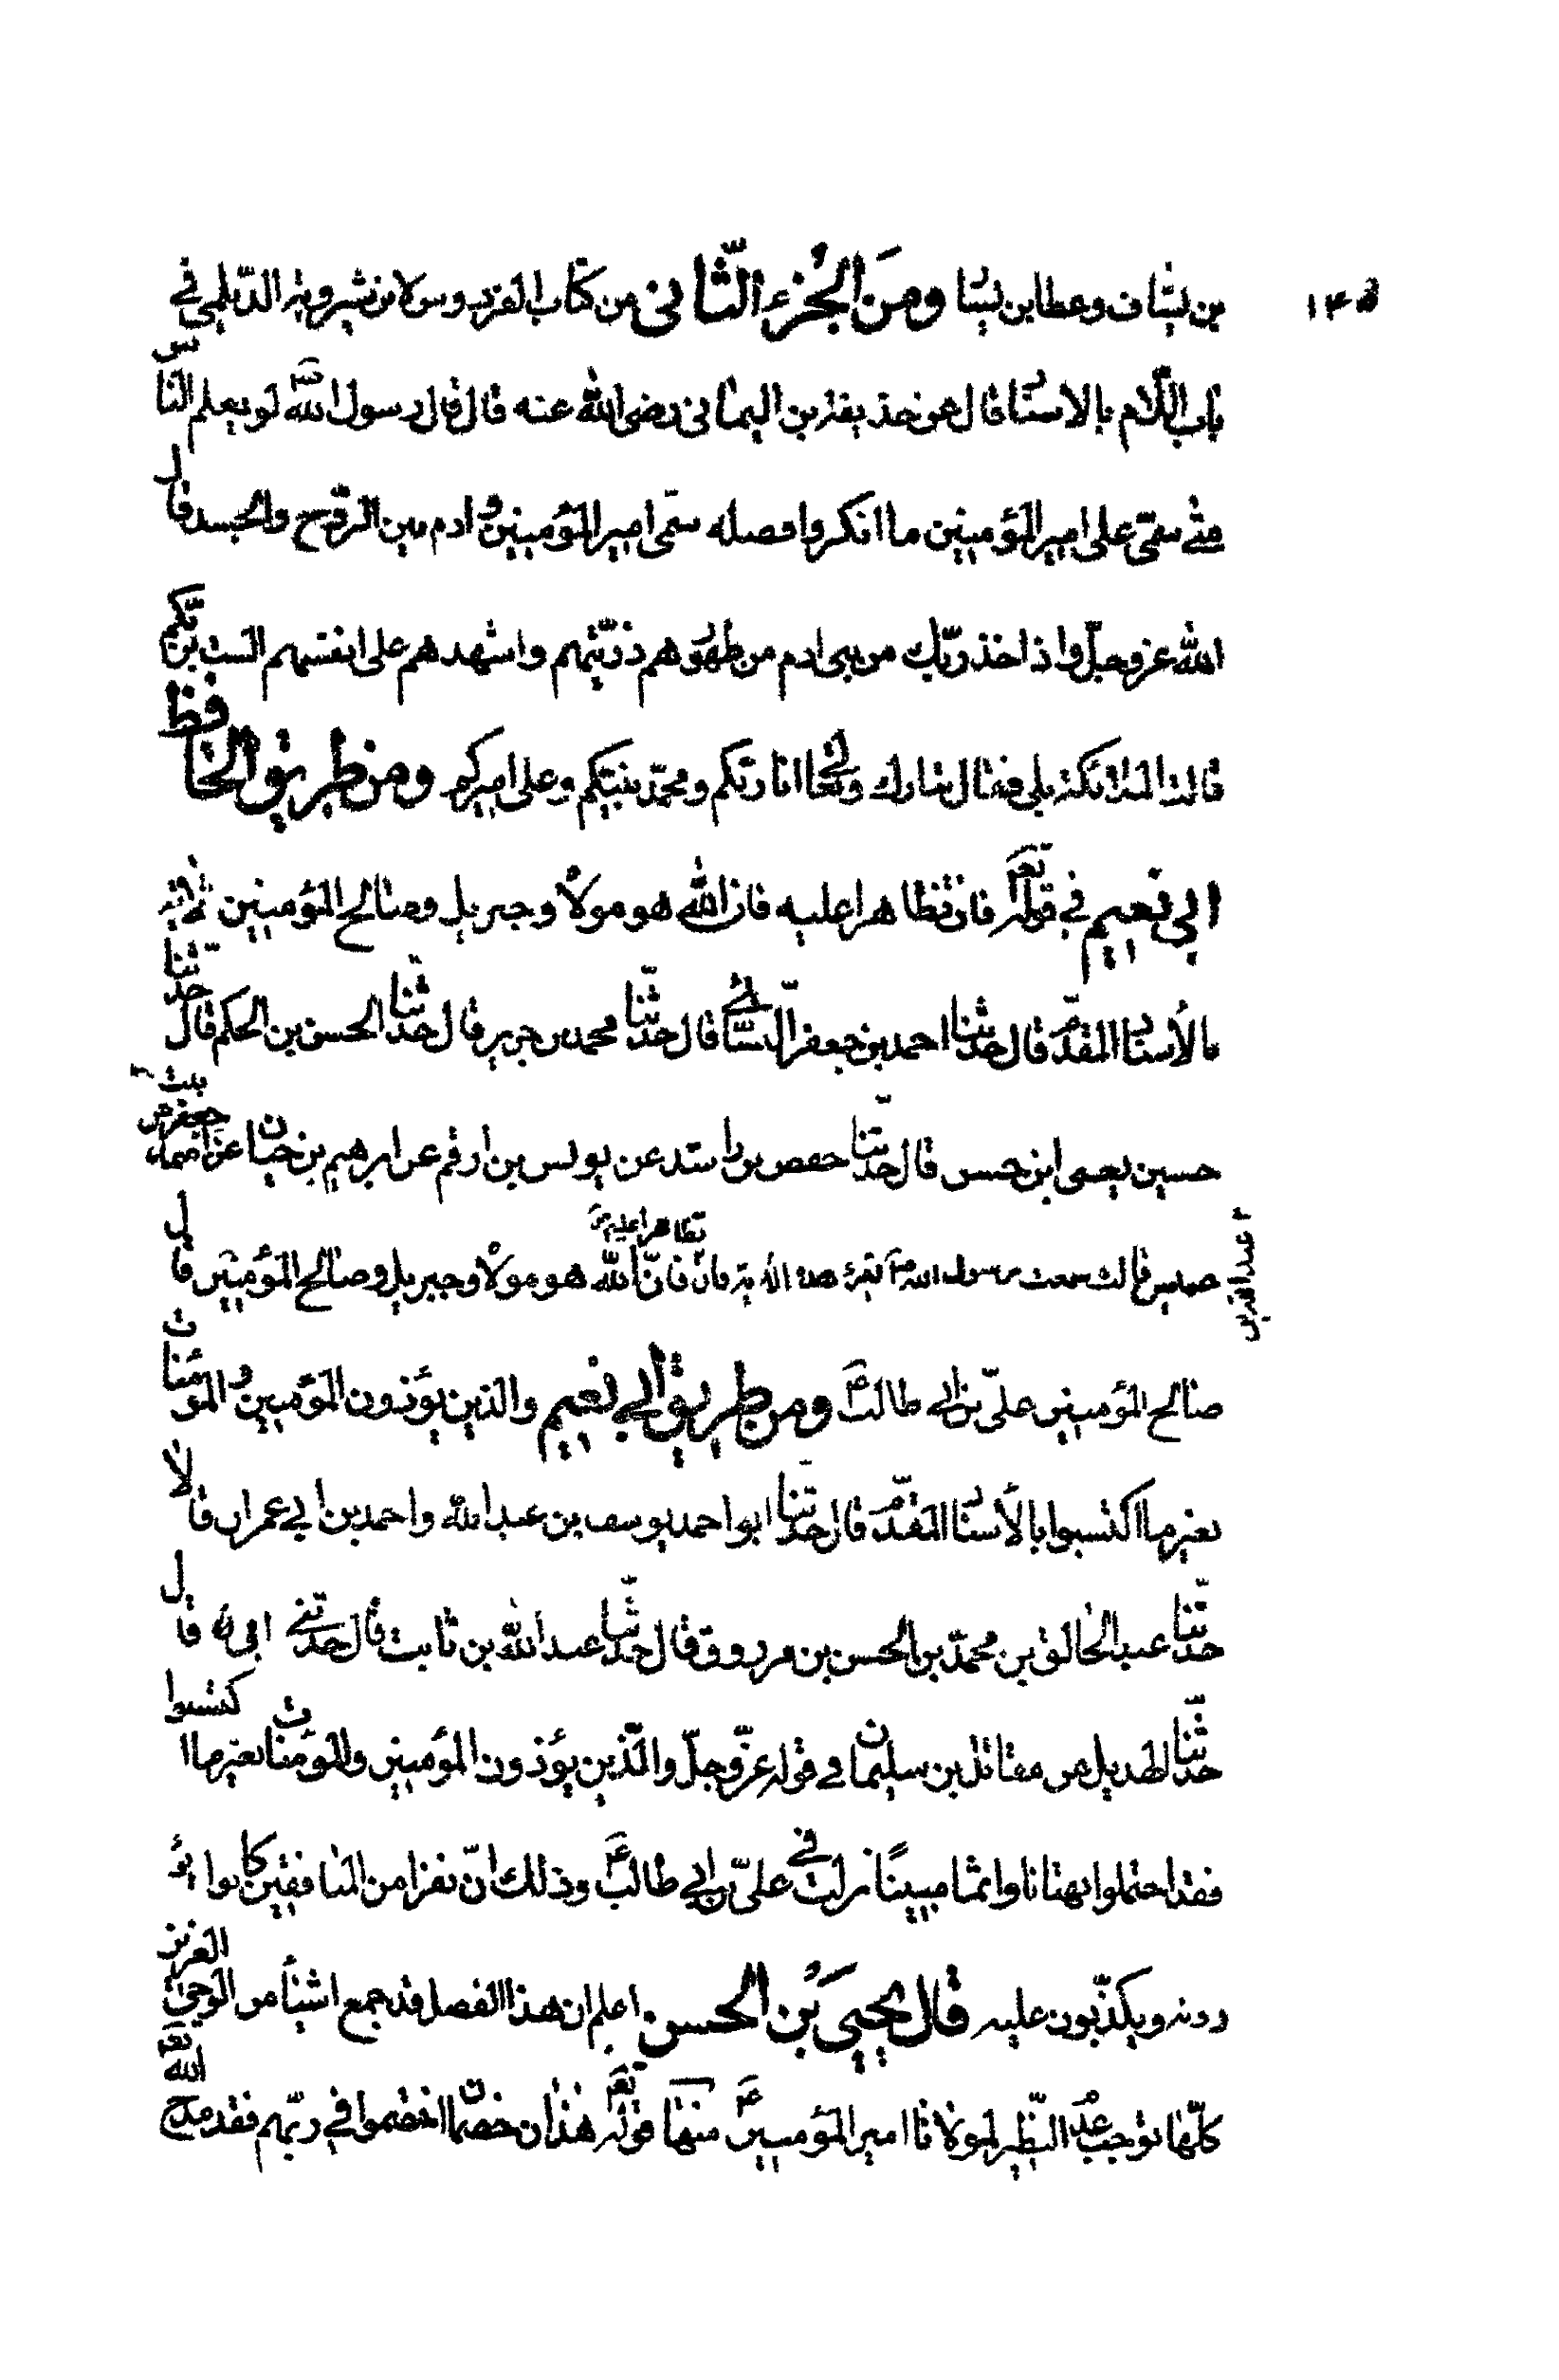 ١٤٥
بن يسار وعطا بن يسار ومن الجزء الثاني من كتاب الفردوس لابن شيرويه الديلمي في
باب اللام بالاسناد قال عن حذيفة بن اليماني رضي الله عنه قال قال رسول الله ص لو يعلم الناس
متى سمّى علي امير المؤمنين ما انكروا فضله سمّى امير المؤمنين وادم بين الرّوح والجسد قال
الله عز وجلّ واذ اخذ ربّك من بني ادم من ظهورهم ذريّتهم واشهدهم على انفسهم الست بربّكم
قالت الملائكة بلى فقال تبارك وتعالى انا ربّكم ومحمّد نبيّكم وعلي اميركم ومن طريق الحافظ
ابي نعيم في قوله تعم فان تظاهرا عليه فان الله هو مولاه وجبريل وصالح المؤمنين
بالأسناد المقدّم قال حدّثنا احمد بن جعفر النسائي قال حدّثنا محمد بن جرير قال حدّثنا الحسن بن الحكم قال حدّثنا
حسين يعنى ابن حسن قال حدّثنا حفص بن راشد عن يونس بن ارقم عن ابرهيم بن حيان عن ام جعفر بنت
عبد الله بن
عميس قالت سمعت رسول الله ص يقرء هذه الآية فان تظاهرا عليه فانّ الله هو مولاه وجبريل وصالح المؤمنين قال
صالح المؤمنين علىّ بن ابي طالب ع ومن طريق ابي نعيم والذين يؤذون المؤمنين والمؤمنات
بغير ما اكتسبوا بالأسناد المقدّم قال حدّثنا ابو احمد يوسف بن عبد الله واحمد بن ابي عمران قالا
حدّثنا عبد الخالق بن محمّد بن الحسن بن مرزوق قال حدّثنا عبد الله بن ثابت قال حدّثني ابي قال
حدّثنا الهذيل عن مقاتل بن سليمان في قوله عزّ وجلّ والّذين يؤذون المؤمنين والمؤمنات بغير ما اكتسبوا
فقد احتملوا بهتانا واثما مبينًا نزلت في علىّ بن ابي طالب ع وذلك انّ نفرا من المنافقين كانوا يؤ
ذونه ويكذّبون عليه قال يحيى بن الحسن اعلم ان هذا الفصل قد جمع اشيأ من الوحى العزيز
كلّها توجب عدم النّظير لمولانا امير المؤمنين ع منها قوله تعم هذان خصمان اختصموا في ربّهم فقد مدح الله تعم